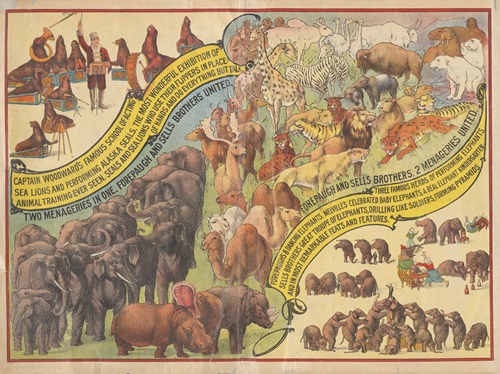 CAPTAIN WOODWARD'S FAMOUS SCHOOL OF ACTING
SEA LIONS AND PERFORMING ALASKA SEALS, THE MOST WONDERFUL EXHIBITION OF
ANIMAL TRAINING EVER SEEN, SEALS AND SEA LIONS WHO USE THEIR FLIPPERS IN PLACE
OF HANDS AND DO EVERYTHING BUT TALK.
TWO MENAGERIES IN ONE, FOREPAUGH AND SELLS BROTHERS UNITED.
FOREPAUGH AND SELLS BROTHERS, 2 MENAGERIES UNITED.
THREE FAMOUS HERDS OF PERFORMING ELEPHANTS
FOREPAUGH'S DANCING ELEPHANTS, MELVILLE'S CELEBRATED BABY ELEPHANTS, A REAL ELEPHANT KINDERGARTEN
SELLS BROTHERS GREAT TROUPE OF ELEPHANTS, DRILLING LIKE SOLDIERS, FORMING PYRAMIDS,
AND IN MOST REMARKABLE FEATS AND FEATURES.